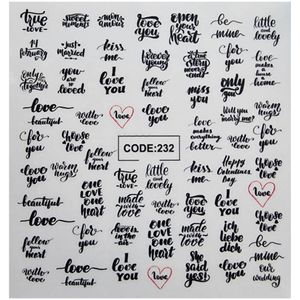 true
love
sweet
moments
mon
amour
love
you
open
your
heart
be
mine
little
and
lovely
14
february
just
married
kiss
me
forever
young
follow
your
heart
for
you
love
makes a
house a
home
only
together
you
are
loved
I
love
you
follow
your
heart
miss
you
only
you
Will you
marry me?
warm
hugs
love
beautiful
with
love
love
for
you
love
makes
everything
better
with
love
for
you
choose
love
CODE:232
kiss
me
Happy
Valentines
Day
love
warm
hugs
follow
your
heart
true
love
little
and
lovely
love
beautiful
with
love
one
love
one
heart
made
with
love
one
love
one
heart
for
you
choose
love
love
you
home
is in
your
heart
I
love
you
love
you
Ich
liebe
dich
be
mine
love
beautiful
with
love
love
I
love
you
She
said
yes!
for
you
our
wedding